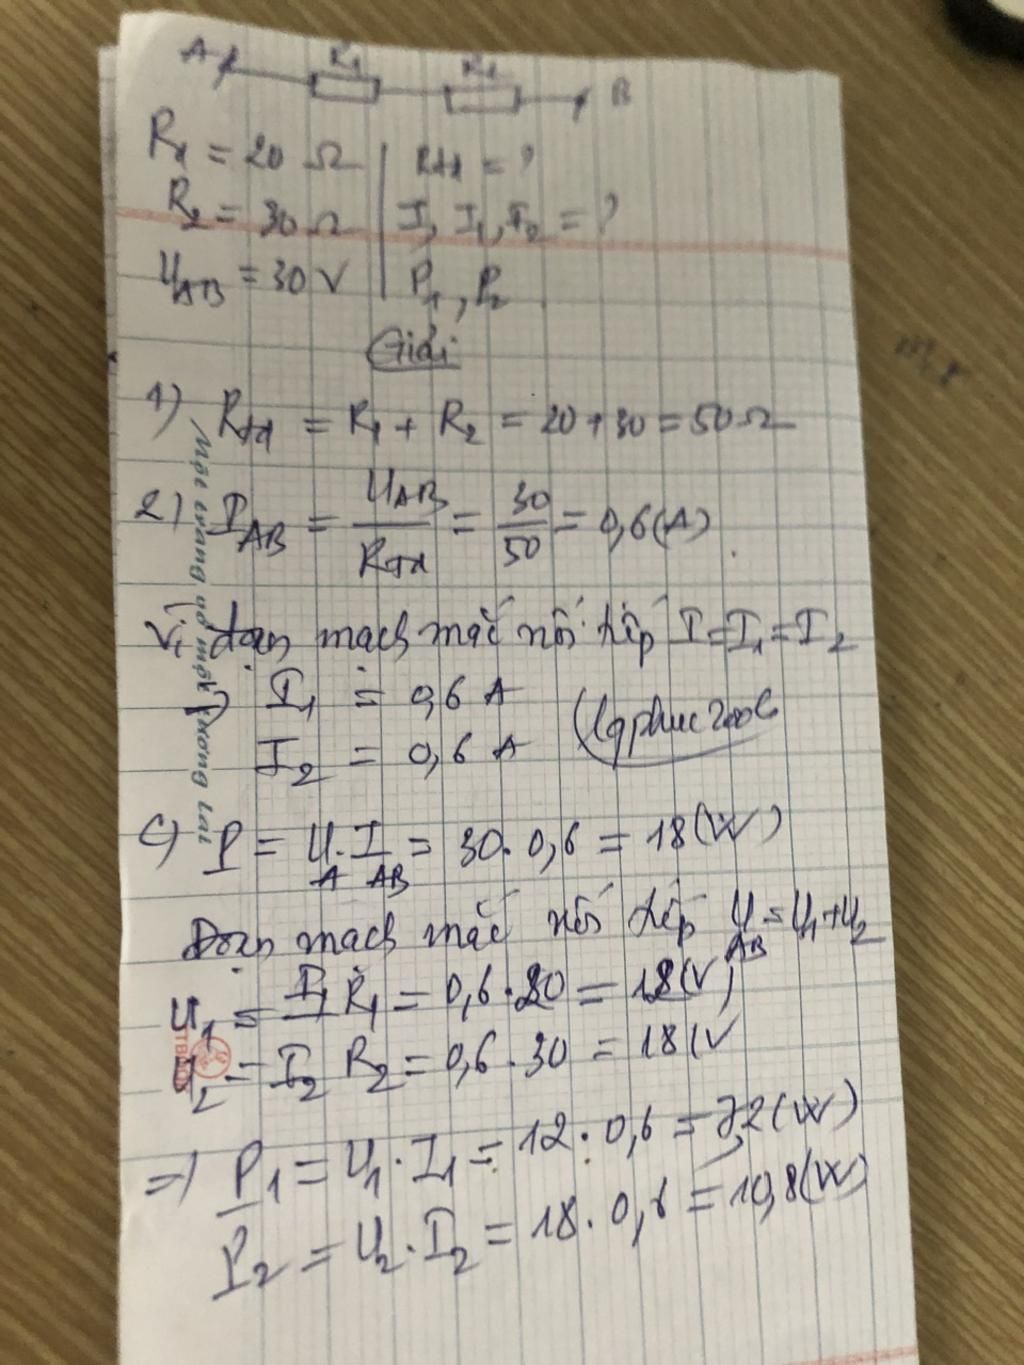 A R1 R2 B
R1 = 20 Ω | Rtđ = ?
R2 = 30 Ω | I, I1, I2 = ?
UAB = 30 V | P1, P2
Giải
1) Rtđ = R1 + R2 = 20 + 30 = 50 Ω
2) IAB = UAB / Rtđ = 30 / 50 = 0,6 (A)
Vì đoạn mạch mắc nối tiếp I = I1 = I2
I1 = 0,6 A
I2 = 0,6 A
c) P = U. I AB = 30. 0,6 = 18 (W)
Đoạn mạch mắc nối tiếp UAB = U1 + U2
U1 = I1 R1 = 0,6 . 20 = 12 (V)
U2 = I2 R2 = 0,6 . 30 = 18 (V
=) P1 = U1 . I1 = 12 . 0,6 = 7,2 (W)
P2 = U2 . I2 = 18 . 0,6 = 10,8 (W)
Một trang vở một tương lai